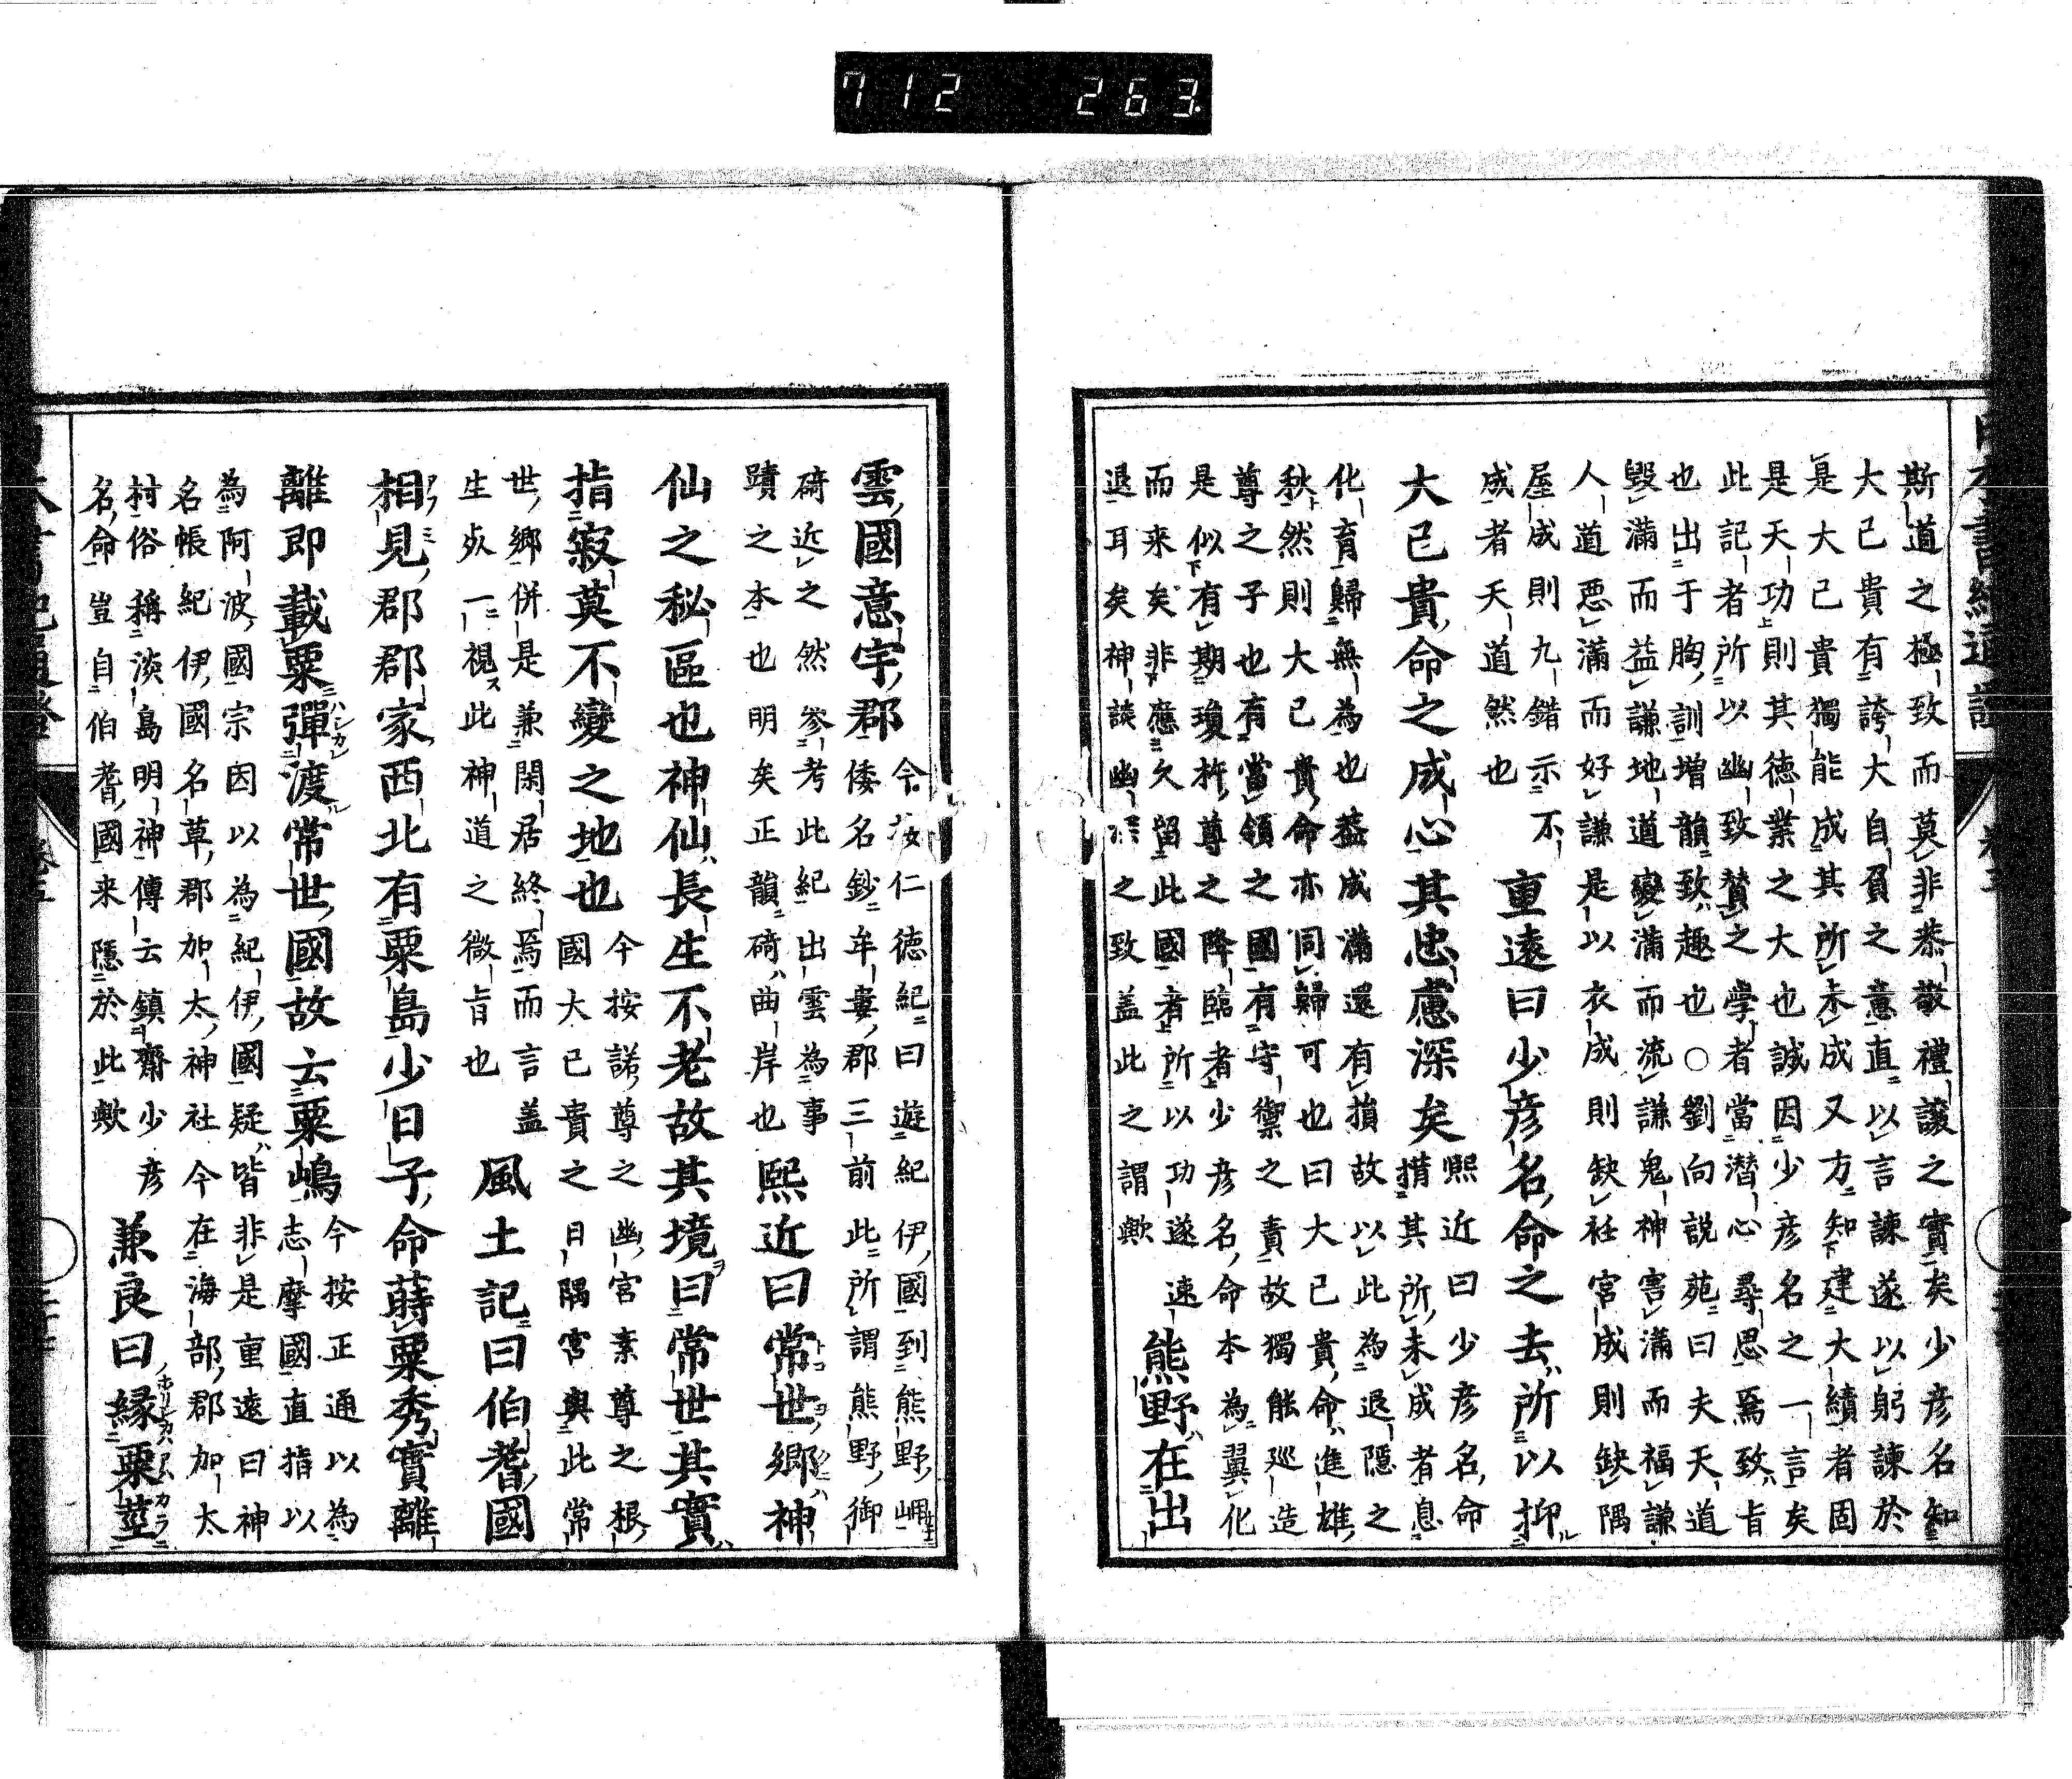 712 263
斯道之極致而莫非恭敬禮讓之實矣少彦名知
大已貴有誇大自負之意直以言諫遂以躬諫於
是大己貴獨能成其所未成又方知建大績者固
是天功則其德業之大也誠因少彦名之一言矣
此記者所以幽致賛之學者當潜心尋思焉致旨
也出于胸訓増韻致趣也○劉向説苑曰夫天道
毀滿而益謙地道變滿而流謙鬼神害滿而福謙
人道惡滿而好謙是以衣成則缺衽宮成則缺隅
屋成則九錯示不
成者天道然也
重遠曰少彦名命之去所以抑
大已貴命之成心其忠慮深矣
熙近曰少彦名命
措其所未成者息
化育歸無為也葢成滿還有損故以此為退隱之
秋然則大已貴命亦同歸可也曰大已貴命進雄
尊之子也有當領之國有守禦之責故獨能巡造
是似有期瓊杵尊之降臨者少彦名命本為翼化
而来矣非應久留此國者所以功遂速
退耳矣神談幽之致盖此之謂歟
熊野在出
雲國意宇郡
今按仁徳紀曰遊紀伊國到熊野岬
倭名鈔牟婁郡三前此所謂熊野御
碕近之然参考此紀出雲為事
蹟之本也明矣正韻碕曲岸也
熙近曰常世郷神
仙之秘區也神仙長生不老故其境曰常世其實
指寂莫不變之地也
今按諾尊之幽宮素尊之根
國大已貴之日隅宮與此常
世郷併是兼閑居終焉而言盖
生処一視此神道之微旨也
風土記曰伯耆國
相見郡郡家西北有粟島少日子命蒔粟秀實離
離即載粟彈渡常世國故云粟嶋
今按正通以為
志摩國直指以
為阿波國宗因以為紀伊國疑皆非是重遠曰神
名帳紀伊國名草郡加太神社今在海部郡加太
村俗稱淡島明神傳云鎮齋少彦
名命豈自伯耆國来隱於此歟
兼良曰縁粟莖